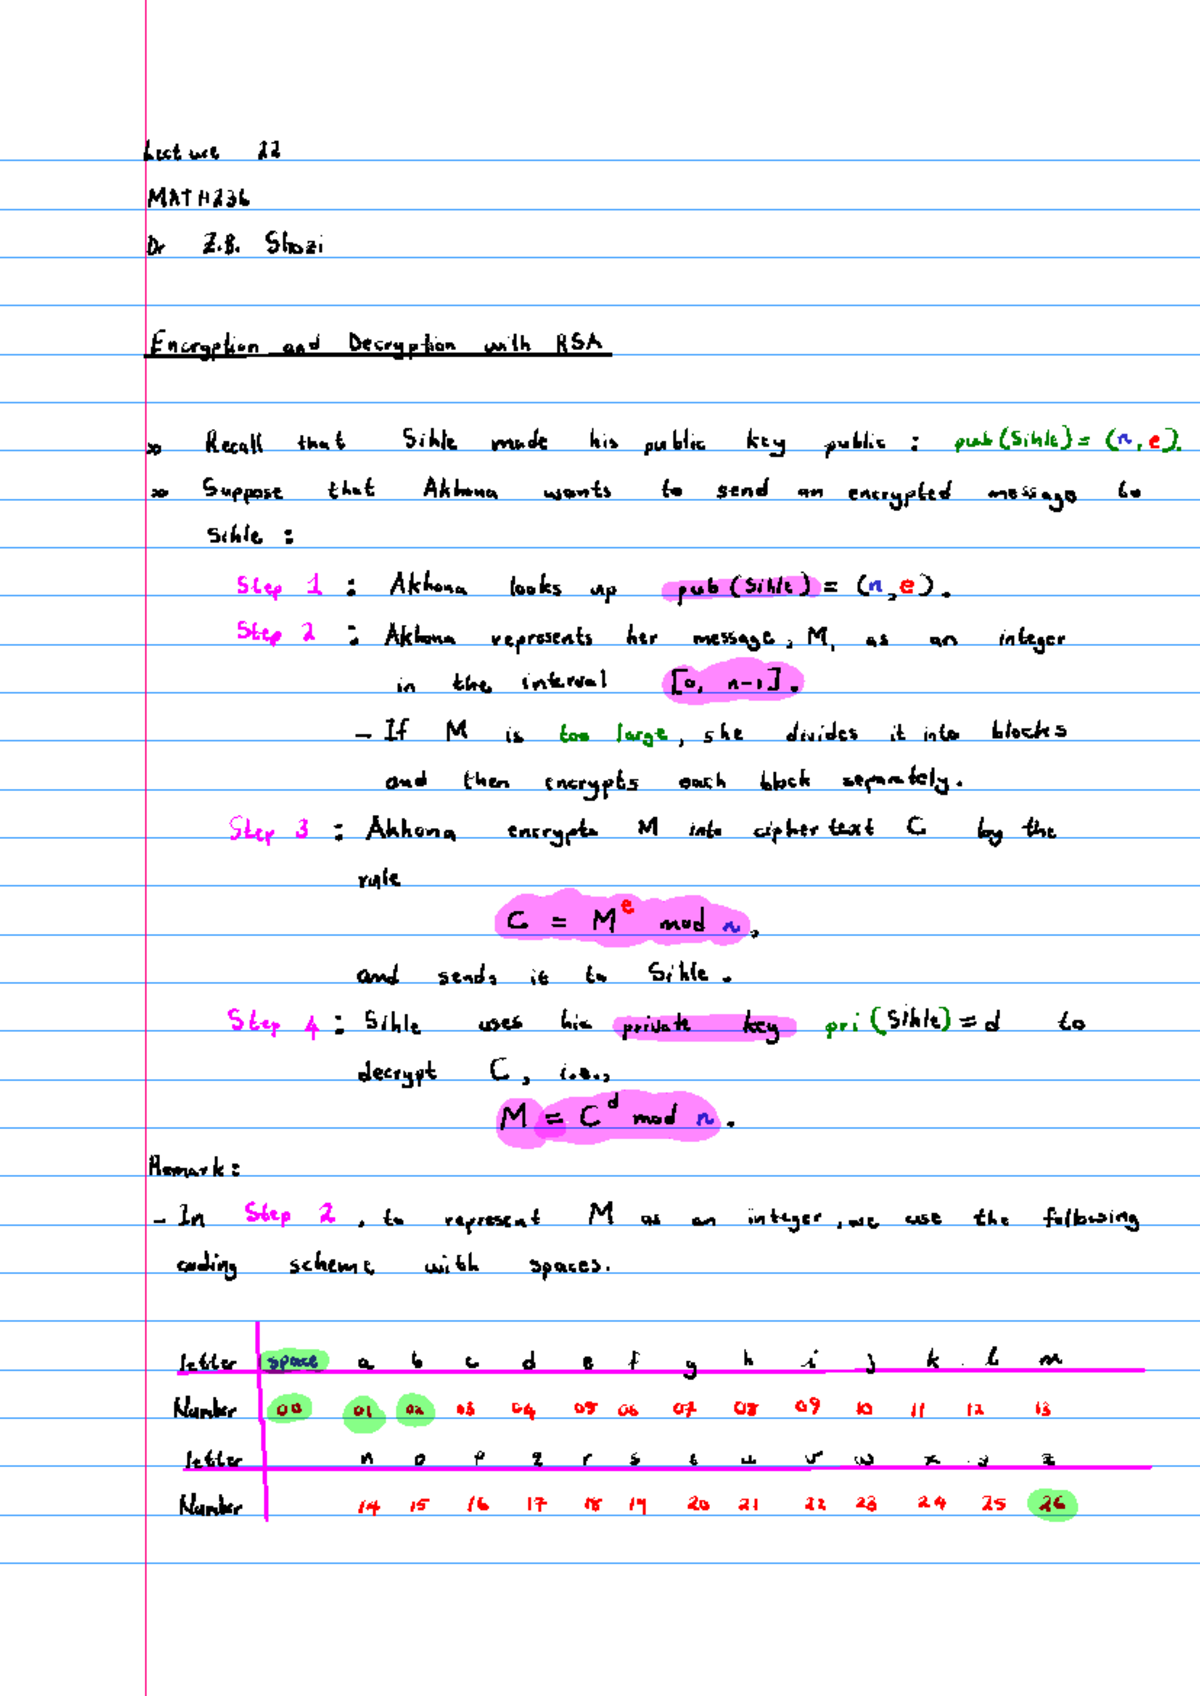 Lecture 22
MATH236
Dr Z.B. Shozi
Encryption and Decryption with RSA
» Recall that Sihle made his public key public : pub(Sihle) = (n, e).
» Suppose that Akhona wants to send an encrypted message to
Sihle :
Step 1 : Akhona looks up pub(Sihle) = (n, e).
Step 2 : Akhona represents her message, M, as an integer
in the interval [0, n-1].
- If M is too large, she divides it into blocks
and then encrypts each block separately.
Step 3 : Akhona encrypts M into ciphertext C by the
rule
C = M^e mod n,
and sends it to Sihle.
Step 4 : Sihle uses his private key pri(Sihle) = d to
decrypt C, i.e.,
M = C^d mod n.
Remark:
- In Step 2, to represent M as an integer, we use the following
coding scheme with spaces.
letter space a b c d e f g h i j k l m
Number 00 01 02 03 04 05 06 07 08 09 10 11 12 13
letter n o p q r s t u v w x y z
Number 14 15 16 17 18 19 20 21 22 23 24 25 26